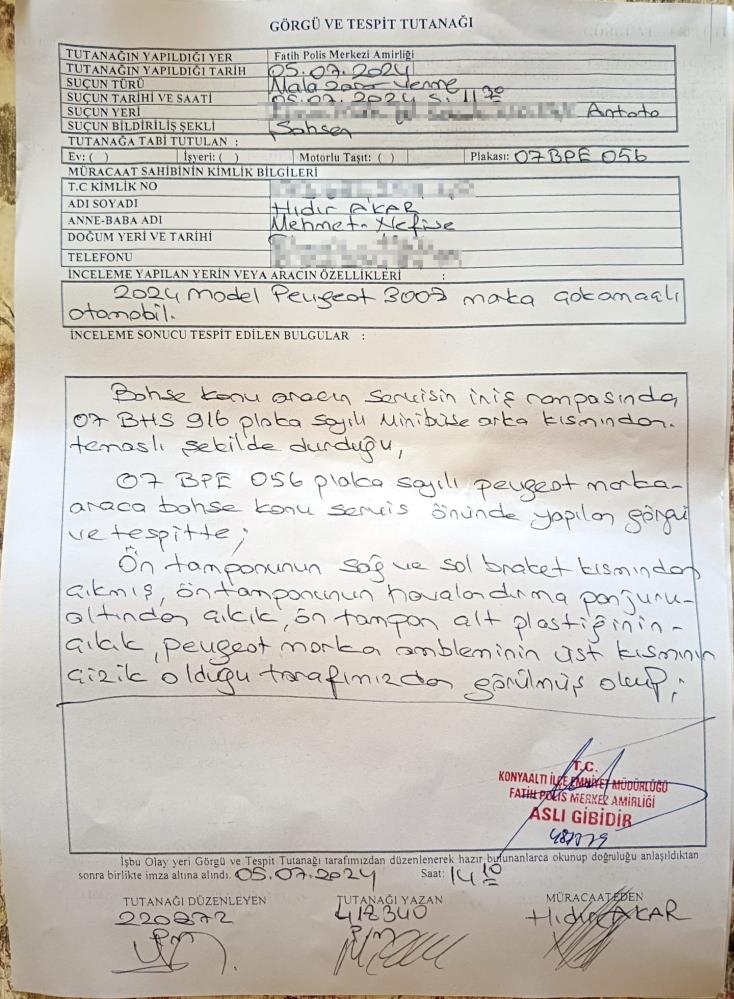 GÖRGÜ VE TESPİT TUTANAĞI
TUTANAĞIN YAPILDIĞI YER Fatih Polis Merkezi Amirliği
TUTANAĞIN YAPILDIĞI TARİH 05.07.2024
SUÇUN TÜRÜ Mala zarar verme
SUÇUN TARİHİ VE SAATİ 05.07.2024 S: 11 30
SUÇUN YERİ Antalya
SUÇUN BİLDİRİLİŞ ŞEKLİ Şahsen
TUTANAĞA TABİ TUTULAN :
Ev: ( ) İşyeri: ( ) Motorlu Taşıt: ( ) Plakası: 07 BPE 056
MÜRACAAT SAHİBİNİN KİMLİK BİLGİLERİ
T.C KİMLİK NO
ADI SOYADI Hıdır AKAR
ANNE-BABA ADI Mehmet - Nefise
DOĞUM YERİ VE TARİHİ
TELEFONU
İNCELEME YAPILAN YERİN VEYA ARACIN ÖZELLİKLERİ :
2024 model Peugeot 3008 marka
otomobil.
İNCELEME SONUCU TESPİT EDİLEN BULGULAR :
Bahse konu aracın servisin iniş rampasında
07 BHS 916 plaka sayılı minibüse arka kısmından
temaslı şekilde durduğu,
07 BPE 056 plaka sayılı peugeot marka
araca bahse konu servis önünde yapılan görgü
ve tespitte;
Ön tamponunun sağ ve sol braket kısmından
çıkmış, ön tamponunun havalandırma panjuru
altından çıkık, ön tampon alt plastiğinin
çıkık, peugeot marka ambleminin üst kısmının
çizik olduğu tarafımızdan görülmüş olup;
T.C.
KONYAALTI İLÇE EMNİYET MÜDÜRLÜĞÜ
FATİH POLİS MERKEZ AMİRLİĞİ
ASLI GİBİDİR
487079
İşbu Olay yeri Görgü ve Tespit Tutanağı tarafımızdan düzenlenerek hazır bulunanlarca okunup doğruluğu anlaşıldıktan
sonra birlikte imza altına alındı. 05.07.2024 Saat: 14 10
TUTANAĞI DÜZENLEYEN TUTANAĞI YAZAN MÜRACAAT EDEN
220872 418340 Hıdır AKAR
PM PM